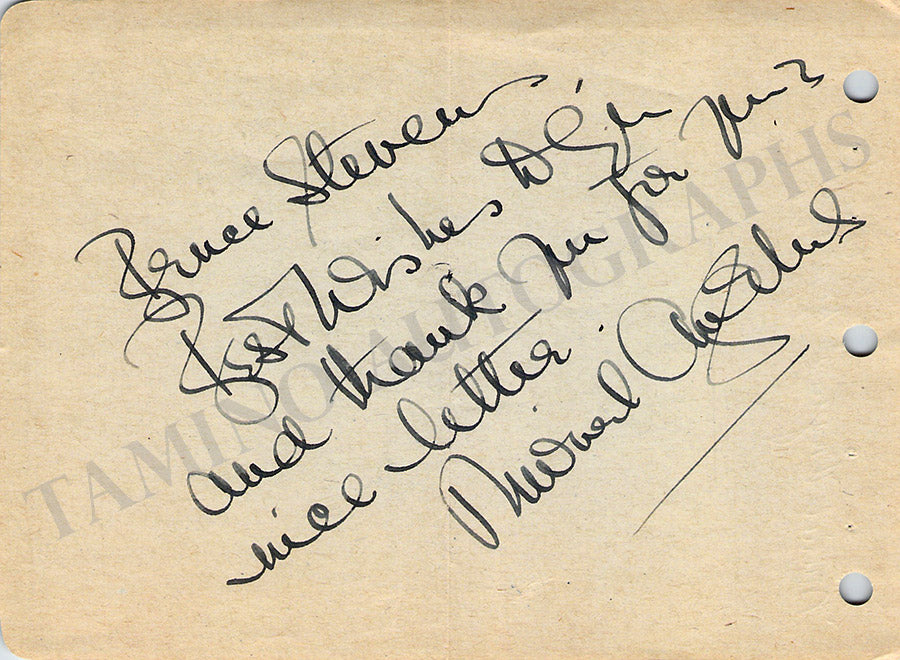 Bruce Stevens
Best Wishes to you
and thank you for your
nice letter.
Richard Addinsell
TAMINO AUTOGRAPHS